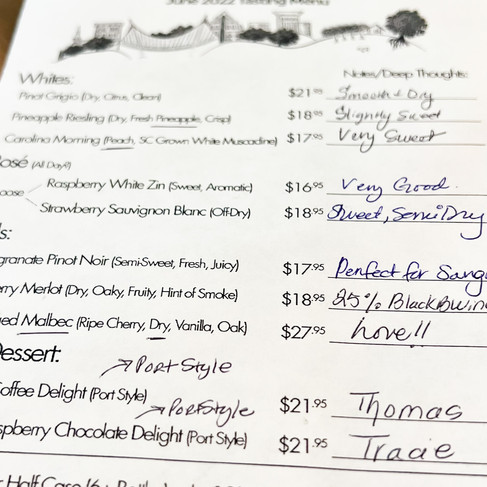 June 2022 Tasting Menu
Whites: Notes/Deep Thoughts:
Pinot Grigio (Dry, Citrus, Clean) $21.95 Smooth & Dry
Pineapple Riesling (Dry, Fresh Pineapple, Crisp) $18.95 Slightly Sweet
Carolina Morning (Peach, SC Grown White Muscadine) $17.95 Very Sweet
osé (All Day!!)
oose Raspberry White Zin (Sweet, Aromatic) $16.95 Very Good.
Strawberry Sauvignon Blanc (Off-Dry) $18.95 Sweet, Semi Dry
s:
granate Pinot Noir (Semi-Sweet, Fresh, Juicy) $17.95 Perfect for Sang
rry Merlot (Dry, Oaky, Fruity, Hint of Smoke) $18.95 25%
ed Malbec (Ripe Cherry, Dry, Vanilla, Oak) $27.95 Love!!
Dessert:
Port Style
offee Delight (Port Style) $21.95 Thomas
Port Style
spberry Chocolate Delight (Port Style) $21.95 Tracie
Half Case (6